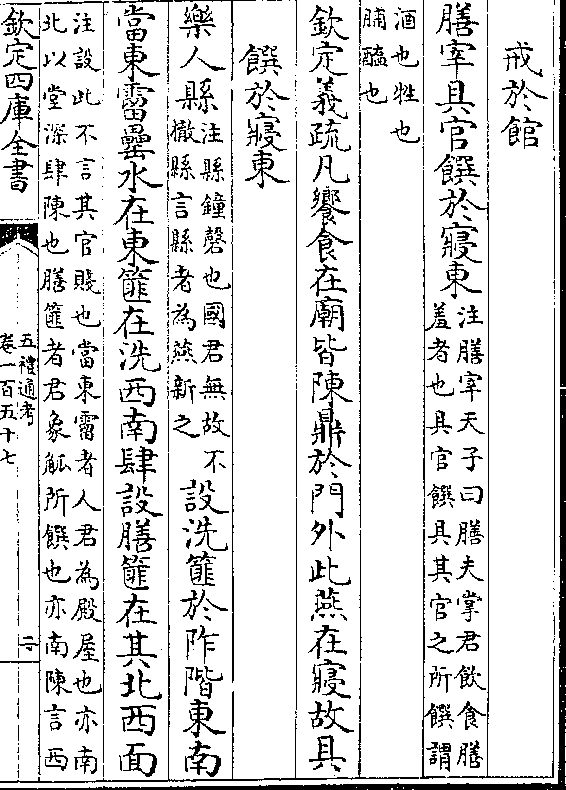 戒於館
膳宰具官饌於寢東注膳宰天子曰膳夫掌君飲食膳
羞者也具官饌具其官之所饌謂
酒也牲也
脯醢也
欽定義疏凡饗食在廟皆陳鼎於門外此燕在寢故具
饌於寢東
樂人縣注縣鐘磬也國君無故不
撤縣言縣者為燕新之
設洗篚於阼階東南
當東霤罍水在東篚在洗西南肆設膳篚在其北西面
注設此不言其官賤也當東霤者人君為殿屋也亦南
北以堂深肆陳也膳篚者君象觚所饌也亦南陳言西
欽定四庫全書
五禮通考
卷一百五十七
二